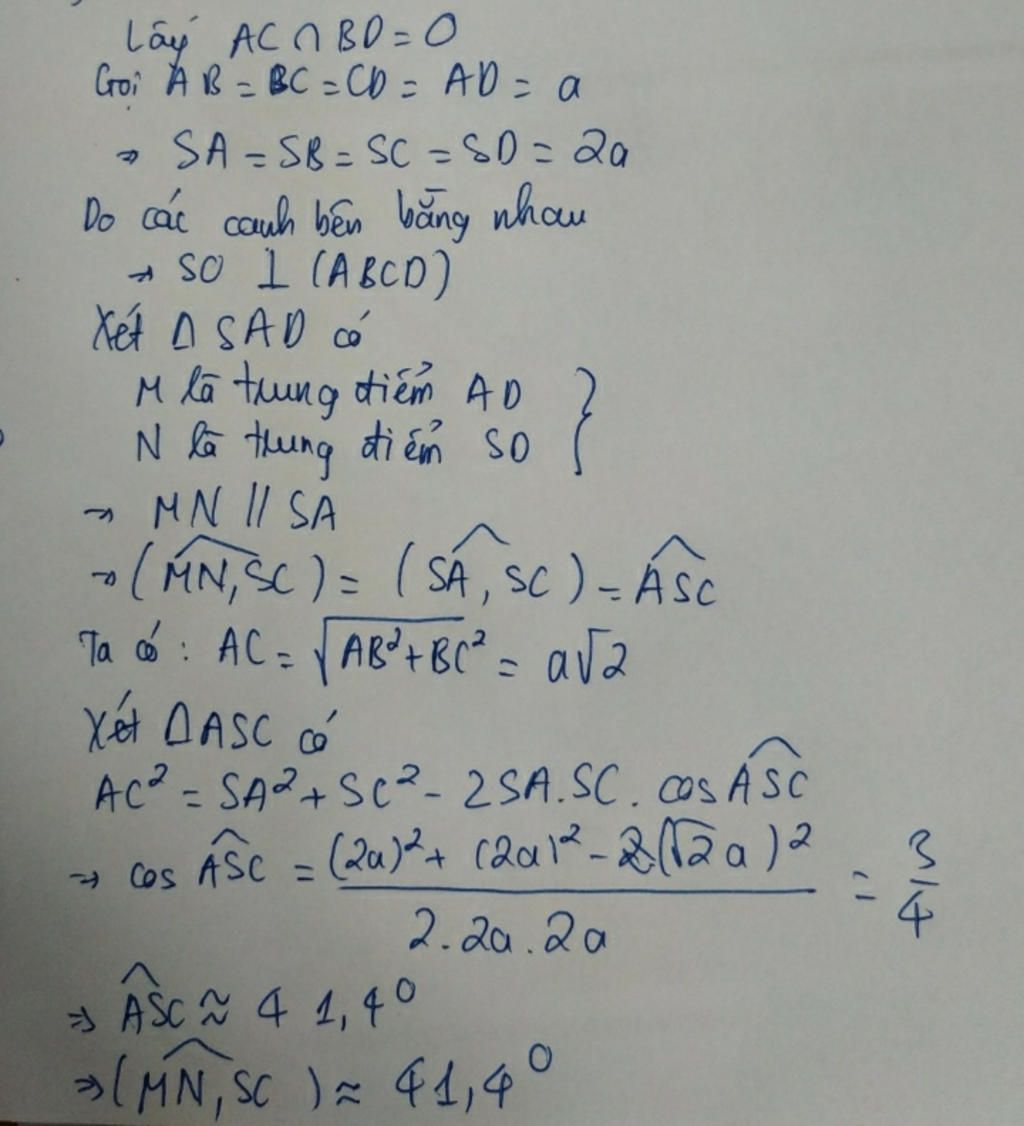 Lấy AC ∩ BD = O
Gọi AB = BC = CD = AD = a
⇒ SA = SB = SC = SD = 2a
Do các cạnh bên bằng nhau
→ SO ⊥ (ABCD)
Xét Δ SAD có
M là trung điểm AD }
N là trung điểm SD }
→ MN // SA
→ (\widehat{MN, SC}) = (\widehat{SA, SC}) = \widehat{ASC}
Ta có : AC = √(AB² + BC²) = a√2
Xét ΔASC có
AC² = SA² + SC² - 2SA.SC. cos \widehat{ASC}
⇒ cos \widehat{ASC} = ((2a)² + (2a)² - (√2a)²) / (2.2a.2a) = 3/4
⇒ \widehat{ASC} ≈ 41,4⁰
⇒ (\widehat{MN, SC}) ≈ 41,4⁰